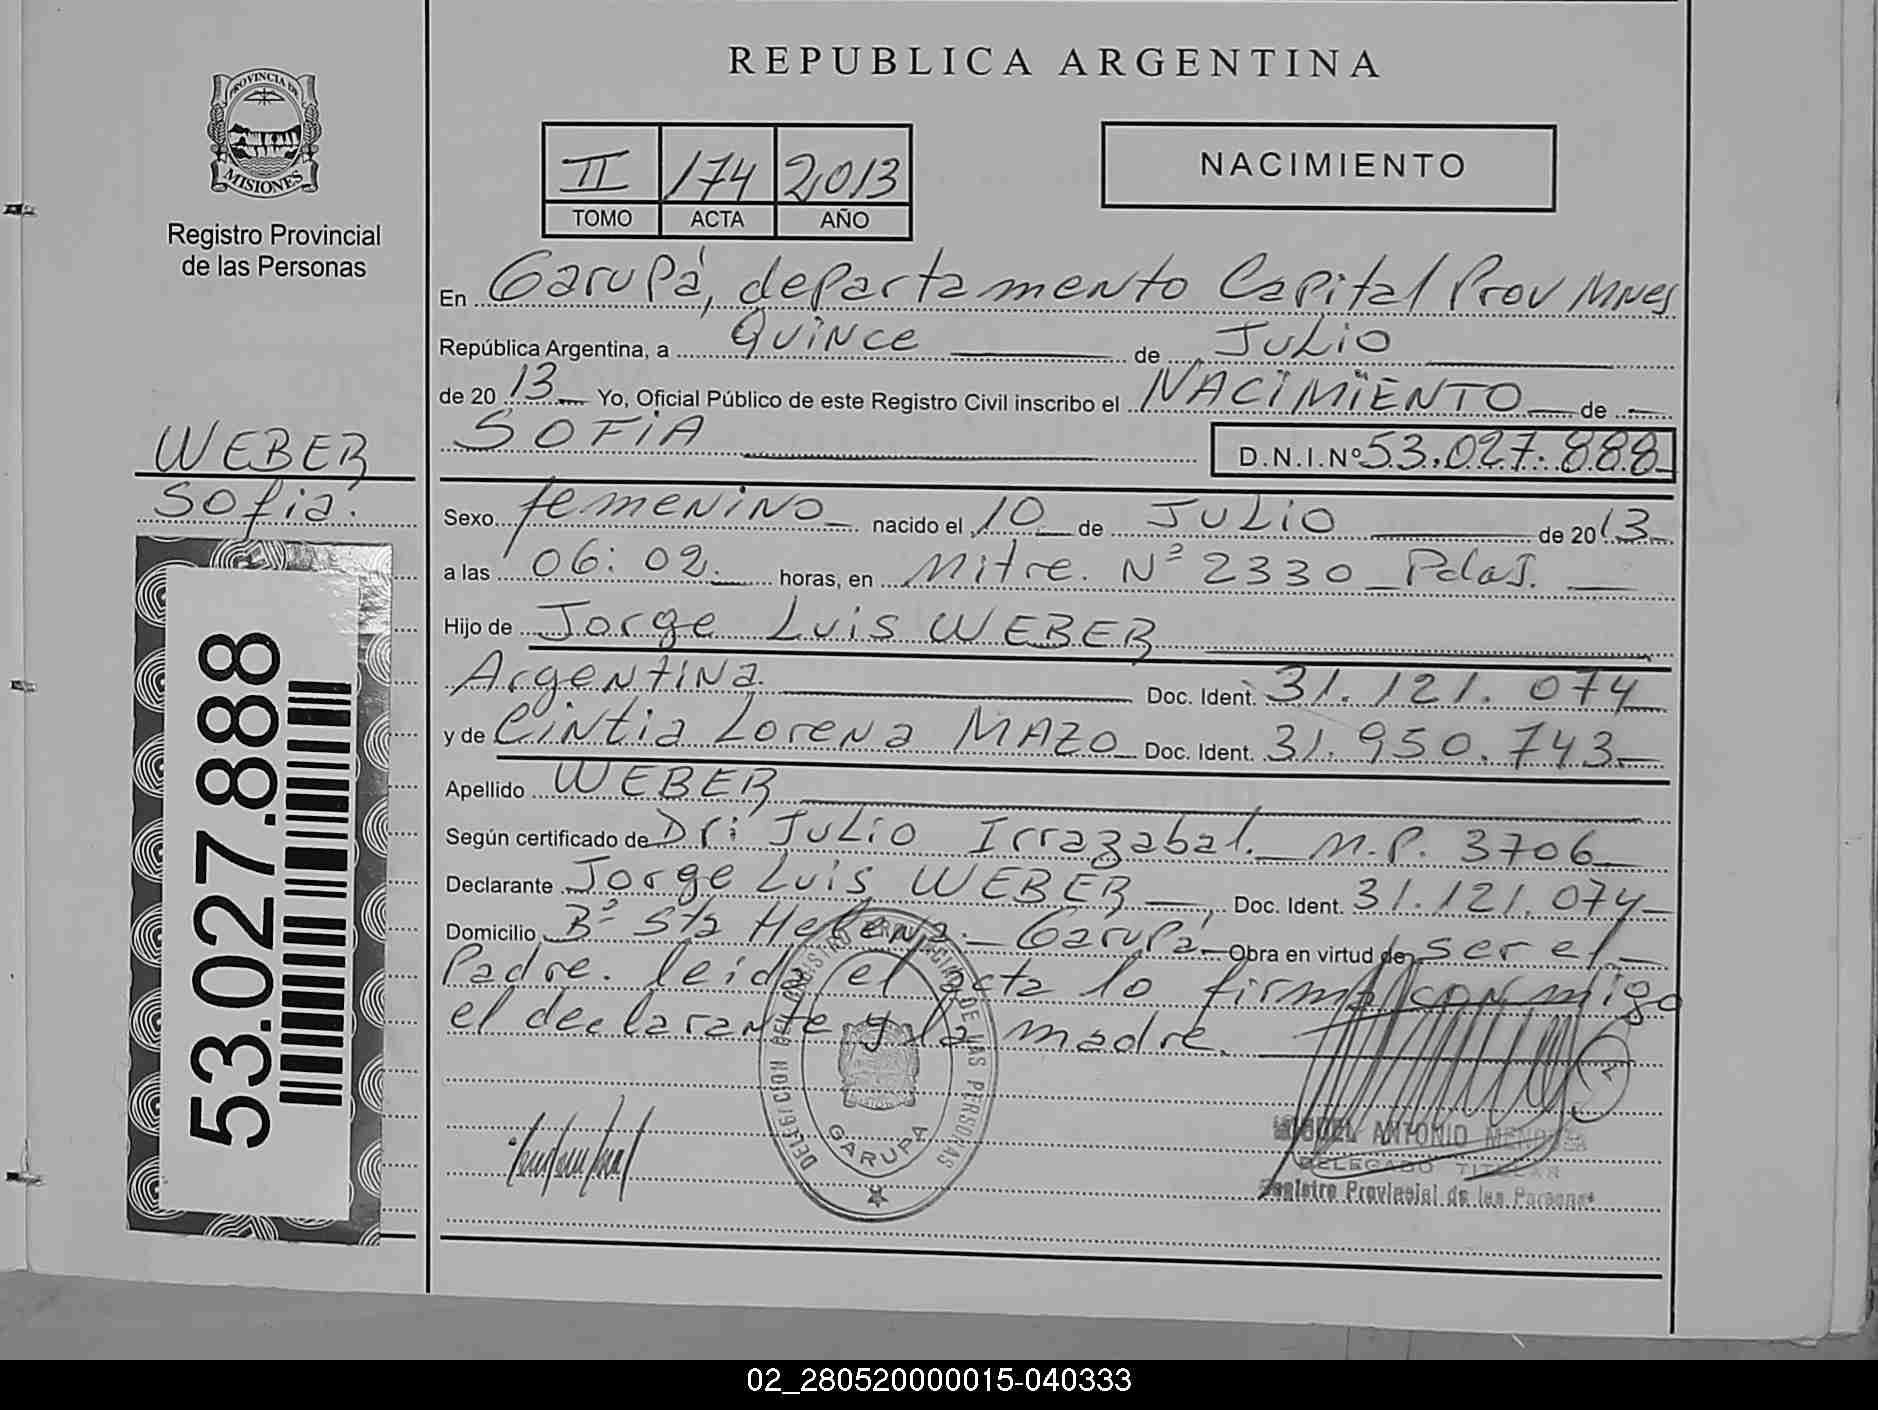 REPUBLICA ARGENTINA
PROVINCIA DE
MISIONES
Registro Provincial
de las Personas
II 174 2013
TOMO ACTA AÑO
NACIMIENTO
En Garupá, departamento Capital Prov Mnes
República Argentina, a Quince de Julio
de 20 13 Yo, Oficial Público de este Registro Civil inscribo el NACIMIENTO de
SOFIA D.N.I.Nº 53.027.888
WEBER
Sofia.
Sexo femenino nacido el 10 de Julio de 20 13
a las 06:02. horas, en Mitre. Nº 2330 Pdas.
Hijo de Jorge Luis WEBER
Argentina. Doc. Ident. 31.121.074
y de Cintia Lorena MAZO Doc. Ident. 31.950.743
Apellido WEBER
Según certificado de Dr: Julio Irrazabal. M.P. 3706
Declarante Jorge Luis WEBER Doc. Ident. 31.121.074
Domicilio Bº Sta Helena. Garupá Obra en virtud de ser el
Padre. leida el acta lo firma conmigo
el declarante y la madre.
53.027.888
DELEGACION DEL REGISTRO PROVINCIAL DE LAS PERSONAS
GARUPA
MIGUEL ANTONIO
DELEGADO TITULAR
Registro Provincial de las Personas
02_280520000015-040333